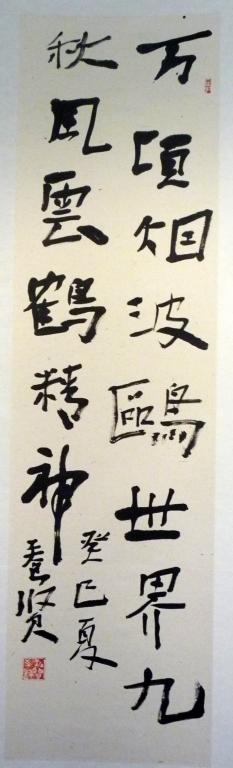 万頃烟波鷗世界九
秋風雲鶴精神
癸巳夏